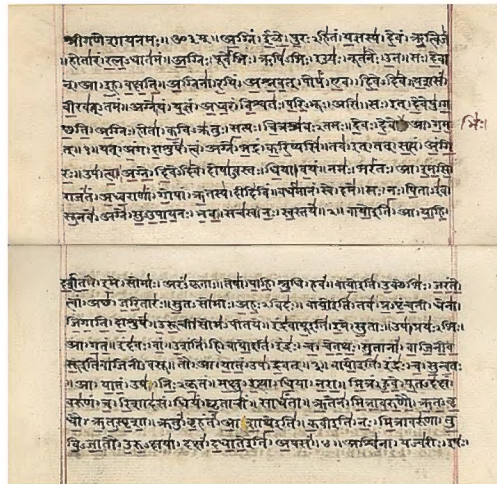 श्रीगणेशायनमः॥ॐ३म्॥अग्निं।ईळे।पुरःऽहितं।यज्ञस्य।देवं।ऋत्विजं
॥होतारं।रत्नऽधातमं॥अग्निः।पूर्वेभिः।ऋषिऽभिः।ईड्यः।नूतनैः।उत॥सः।देवा
न्।आ।इह।वक्षति॥अग्निना।रयिं।अश्नवत्।पोषं।एव।दिवेऽदिवे॥यशसं
वीरवत्ऽतमं॥अग्ने।यं।यज्ञं।अध्वरं।विश्वतः।परिऽभूः।असि॥सः।इत्।देवेषु।ग
च्छति॥अग्निः।होता।कविऽक्रतुः।सत्यः।चित्रश्रवःऽतमः॥देवः।देवे।आ।गम
भिः
त्॥१॥यत्।अंग।दाशुषे।त्वं।अग्ने।भद्रं।करिष्यसि॥तव।इत्।तत्।सत्यं।अंगि
रः॥उप।त्वा।अग्ने।दिवेऽदिवे।दोषाऽवस्तः।धिया।वयं॥नमः।भरंतः।आ।इमसि॥
राजंतं।अध्वराणां।गोपां।ऋतस्य।दीदिविं॥वर्धमानं।स्वे।दमे॥सः।नः।पिताऽइव
सूनवे।अग्ने।सुऽउपायनः।भव॥सचस्व।नः।स्वस्तये॥२॥वायोइति।आ।याहि।
दर्शत।इमे।सोमाः।अरंऽकृताः॥तेषां।पाहि।श्रुधि।हवं॥वायोइति।उक्थेभिः।जरंते।
त्वां।अच्छ।जरितारः॥सुतऽसोमाः।अहःऽविदः॥वायोइति।तव।प्रऽपृंचती।धेना।
जिगाति।दाशुषे॥उरूची।सोमऽपीतये॥इंद्रवायूइति।इमे।सुताः।उप।प्रयःऽभिः।
आ।गतं॥इंदवः।वां।उशंति।हि॥वायोइति।इंद्रः।च।चेतथः।सुतानां।वाजिनीव
सूइतिवाजिनीवसू॥तौ।आ।यातं।उप।द्रवत्॥३॥वायोइति।इंद्रः।च।सुन्वतः
॥आ।यातं।उप।निःऽकृतं॥मक्षु।इत्था।धिया।नरा॥मित्रं।हुवे।पूतऽदक्षं।
वरुणं।च।रिशादसं॥धियं।घृताचीं।साधंता॥ऋतेन।मित्रावरुणौ।ऋतऽवृ
धौ।ऋतऽस्पृशा॥क्रतुं।बृहंतं।आशाथेइति॥कवीइति।नः।मित्रावरुणा।तु
विऽजातौ।उरुऽक्षया॥दक्षं।दधातेइति।अपसं॥४॥अश्विना।यज्वरीः।इषः।